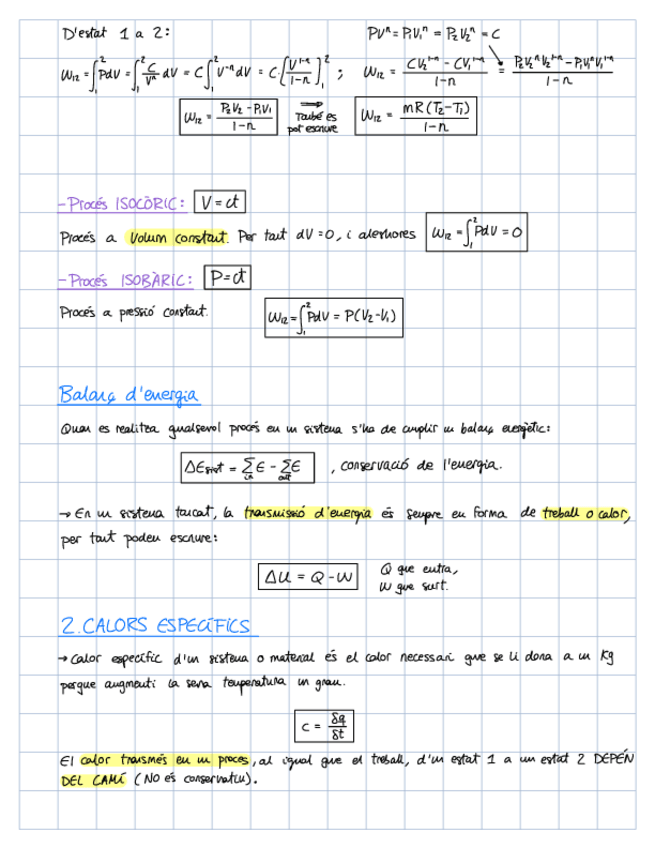 D'estat 1 a 2:
PVⁿ = P₁V₁ⁿ = P₂V₂ⁿ = C
W₁₂ = ∫₁² PdV = ∫₁² C/Vⁿ dV = C ∫₁² V⁻ⁿ dV = C · [V¹⁻ⁿ/(1-n)]₁² ; W₁₂ = (CV₂¹⁻ⁿ - CV₁¹⁻ⁿ)/(1-n) = (P₂V₂ⁿV₂¹⁻ⁿ - P₁V₁ⁿV₁¹⁻ⁿ)/(1-n)
W₁₂ = (P₂V₂ - P₁V₁)/(1-n) ⟹ També es pot escriure W₁₂ = mR(T₂-T₁)/(1-n)
- Procés ISOCÒRIC: V = ct
Procés a volum constant. Per tant dV = 0, i aleshores W₁₂ = ∫₁² PdV = 0
- Procés ISOBÀRIC: P = ct
Procés a pressió constant. W₁₂ = ∫₁² PdV = P(V₂-V₁)
Balanç d'energia
Quan es realitza qualsevol procés en un sistema s'ha de cumplir un balanç energètic:
ΔEsist = ∑in E - ∑out E , conservació de l'energia.
→ En un sistema tancat, la transmissió d'energia és sempre en forma de treball o calor,
per tant podem escriure:
ΔU = Q - W Q que entra,
W que surt.
2. CALORS ESPECÍFICS
→ Calor específic d'un sistema o material és el calor necessari que se li dona a un Kg
perque augmenti la seva temperatura un grau.
c = δq/δt
El calor transmès en un procés, al igual que el treball, d'un estat 1 a un estat 2 DEPÈN
DEL CAMÍ (NO és conservatiu).